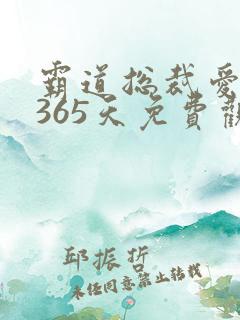 霸道總裁愛
365天免費觀
邱振哲
未经同意禁止转载